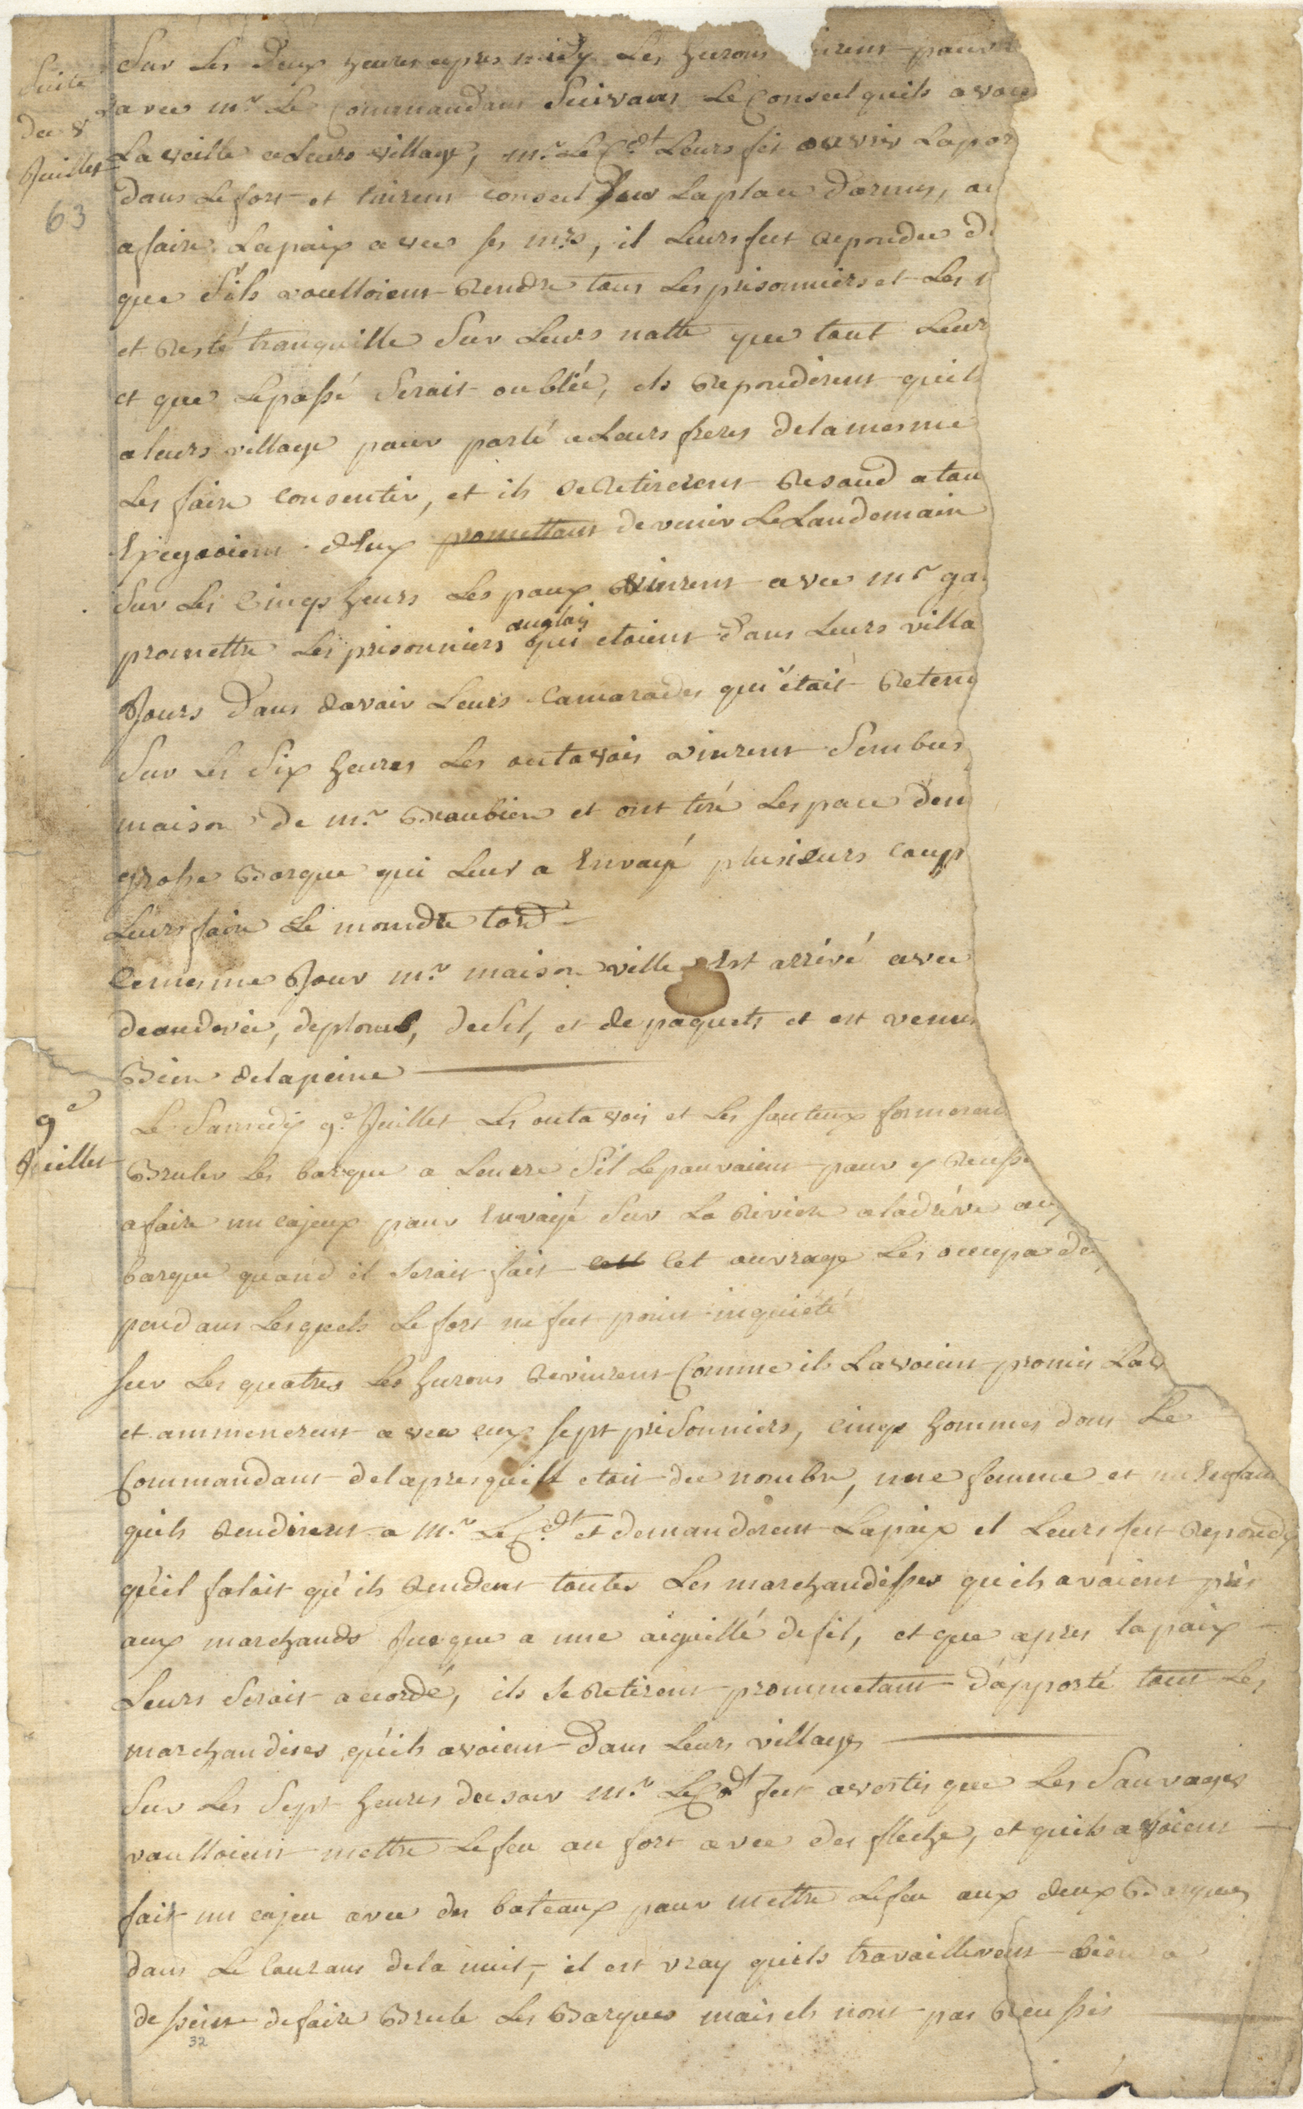 Suite
du 8
Juillet
63
Sur Les Deux heures apres midy Les hurons vinrent pour
avec mr. Le Commandant Suivant Le Conseil quils avoie
La veille a Leurs village, mr. Le Cdt. Leurs fit ouvrir Lapor
dans Le fort et tinrent conseil Sur La place D'armes, au
a faire Lapaix avec ses mrs, il Leurs fut repondue d
que S'ils voulloient Rendre tous Les prisonniers et Les
et Resté tranquille Sur Leurs natte que tout Leur
et que Lepassé Serait oubliée, ils Repondirent quils
a leurs village pour parlé a Leurs freres delamesme
Les faire Consentir, et ils se Retirerent
d'Eux promettant de venir Le Landemain
Sur Les Cinqs heurs Les poux vinrent avec mr ga
promettre Les prisonniers anglais qui etoient dans Leurs villa
Jours Dans davoir Leurs Camarades qui était Retenu
Sur Les Six heures Les outavois vinrent Sembus
maison De mr. Baubien et ont tiré Lespace d'eu
grosse Barque qui Leur a Envoyé plusieurs coup
Leurs faire Le moindre tord
Cemesme Jour mr. maison ville Est arrivé avec
deaudevie, deplomb, deSel, et de paquets et est venu
Bien delapeine
9e
Juillet
Le Samedi 9e. Juillet Les outavois et Les Sauteux formerent
Bruler Les barque a Leucre S'il Lepouvoient pour y Reussi
a faire un cajeux pour Envoyé Sur La Riviere aladrive aux
barque quand il Serait fait cett Cet ouvrage Les occupa de
pendant Lesquels Le fort ne fut point inquiété
sur Les quatres Les hurons Revinrent Comme ils Lavoient promis Lav
et ammenerent avec eux sept priSonniers, cinqs hommes dont Le
Commandant delapresquille etoit du nombre, une femme et un Enfant
quils Rendirent a mr. Le Cdt. et demanderent Lapaix il Leurs fut repondu
qu'il faloit qu'ils Rendent toutes Les marchandisses quils avaient pris
aux marchands Jusque a une aiguillé de fil, et que apres lapaix
Leurs Serait acordé, ils Se Retirent prommetant d'apporté tout Les
marchandises qu'ils avoient dans Leurs villages
Sur Les Sept heures du soir mr. Le Cdt fut avertis que Les Sauvages
voulloient mettre Lefeu au fort avec des fleche, et quils avoient
fait un cajeu avec des bateaux pour mettre Lefeu aux deux Barques
dans Le Courant dela nuit, il est vray quils travaillerent
dessein defaire Brule Les Barques mais ils nont pas Reussis
32